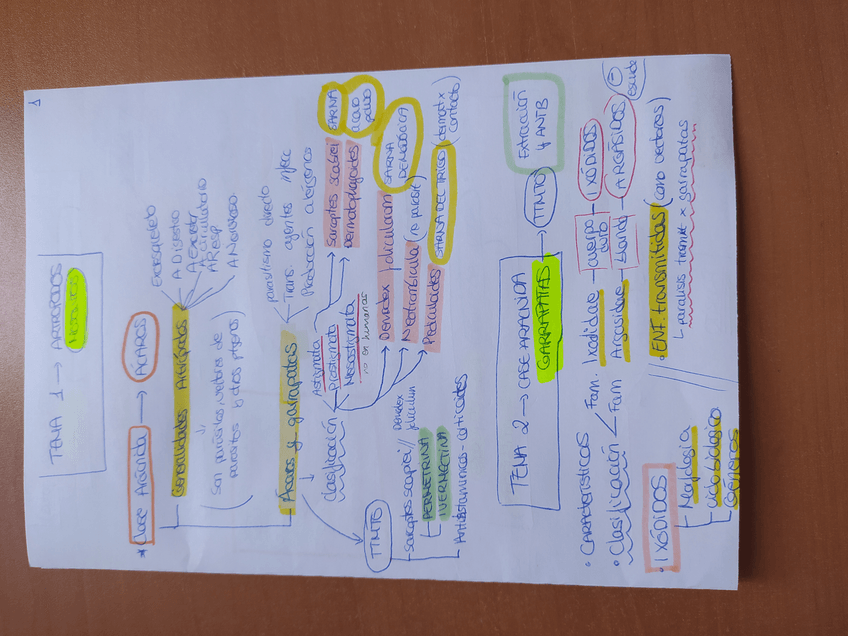 1
TEMA 1 → ARTRÓPODOS
* Clase Arácnida → ÁCAROS
Exoesqueleto
Generalidades Artrópodos
A Digestivo
A Excretor
A Circulatorio
A Resp
A Nervioso
(son parásitos vectores de
parásitos b otros ptgenos)
Ácaros y garrapatas
parasitismo directo
Trans. agentes infecc
Producción alérgenos
Clasificación
Astigmata
Prostigmata
Mesostigmata
no en humanos
Sarcoptes scabiei SARNA
Dermatophagoides ácaro polvo
Demodex folliculorum SARNA DEMODÉCICA
Neotrombicula (no parasit)
Pediculoides SARNA DEL TRIGO (dermat x contacto)
TTMTO
Sarcoptes scabiei // Demodex folliculorum
PERMETRINA
IVERMECTINA
Antihistamínicos - corticoides
TEMA 2 → CASE ARÁCNIDA
GARRAPATAS
→ TTMTO
Extracción
y ANTB
• CARACTERÍSTICAS
• Clasificación
Fam. Ixodidae → cuerpo duro → IXÓDIDOS
Fam Argasidae → blando → ARGÁSIDOS
(-) escudo
• IXÓDIDOS
Morfología
Ciclo biológico
Géneros
• ENF. transmitidas (como vectores)
parálisis transmit x garrapatas